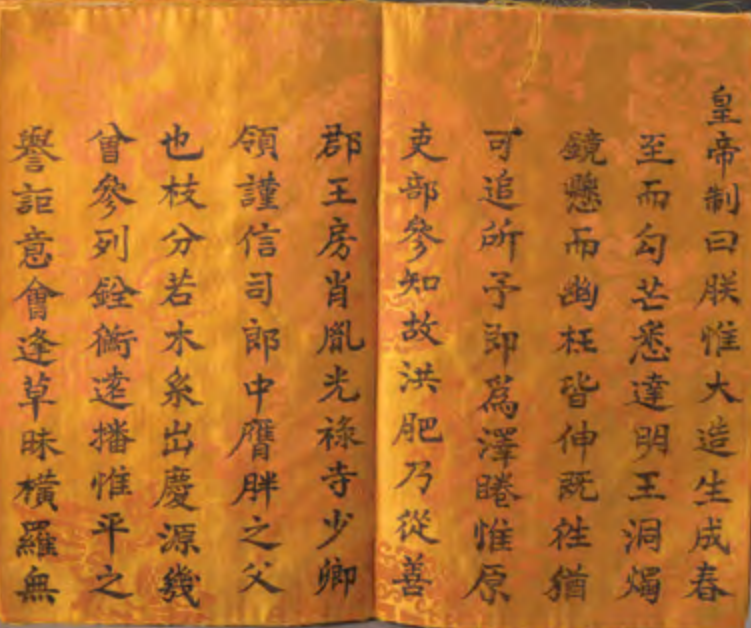 皇帝制曰朕惟大造生成春
至而勾芒悉達明王洞燭
鏡懸而幽枉皆伸既徃猶
可追所予即爲澤睠惟原
吏部參知故洪肥乃從善
郡王房肖胤光祿寺少卿
領謹信司郎中膺胖之父
也枝分若木系出慶源幾
曾參列銓衡逺播惟平之
譽詎意會逢草昧橫羅無